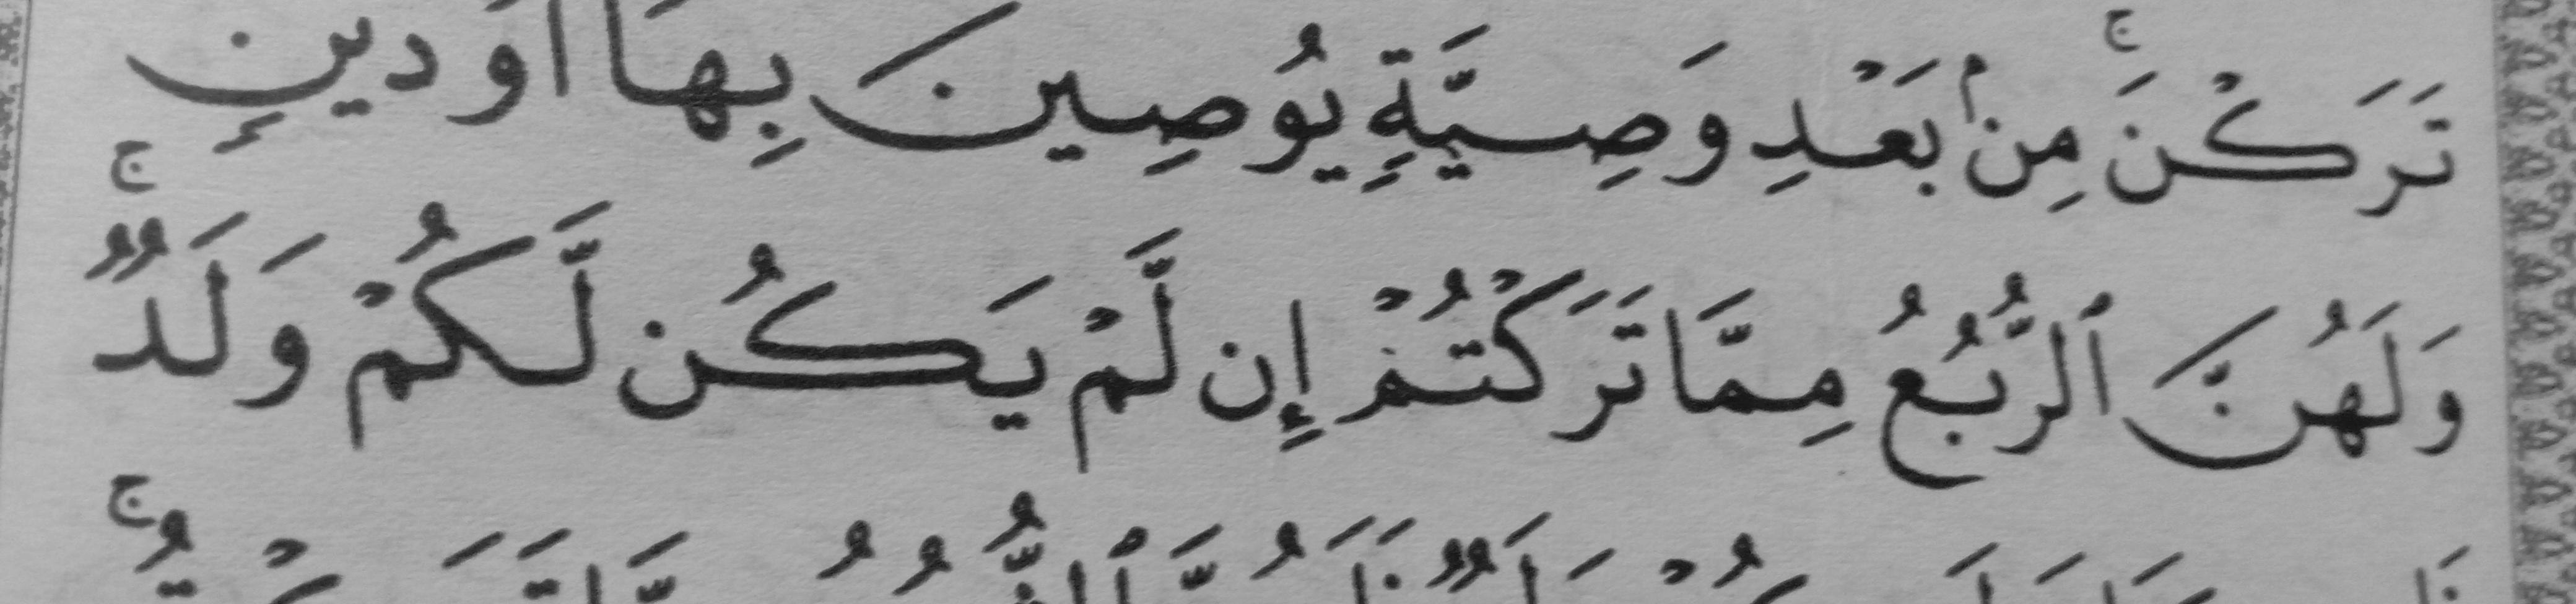 تَرَكْنَ ۚ مِنۢ بَعْدِ وَصِيَّةٍ يُوصِينَ بِهَا أَوْ دَيْنٍ ۚ
وَلَهُنَّ ٱلرُّبُعُ مِمَّا تَرَكْتُمْ إِن لَّمْ يَكُن لَّكُمْ وَلَدٌ ۚ